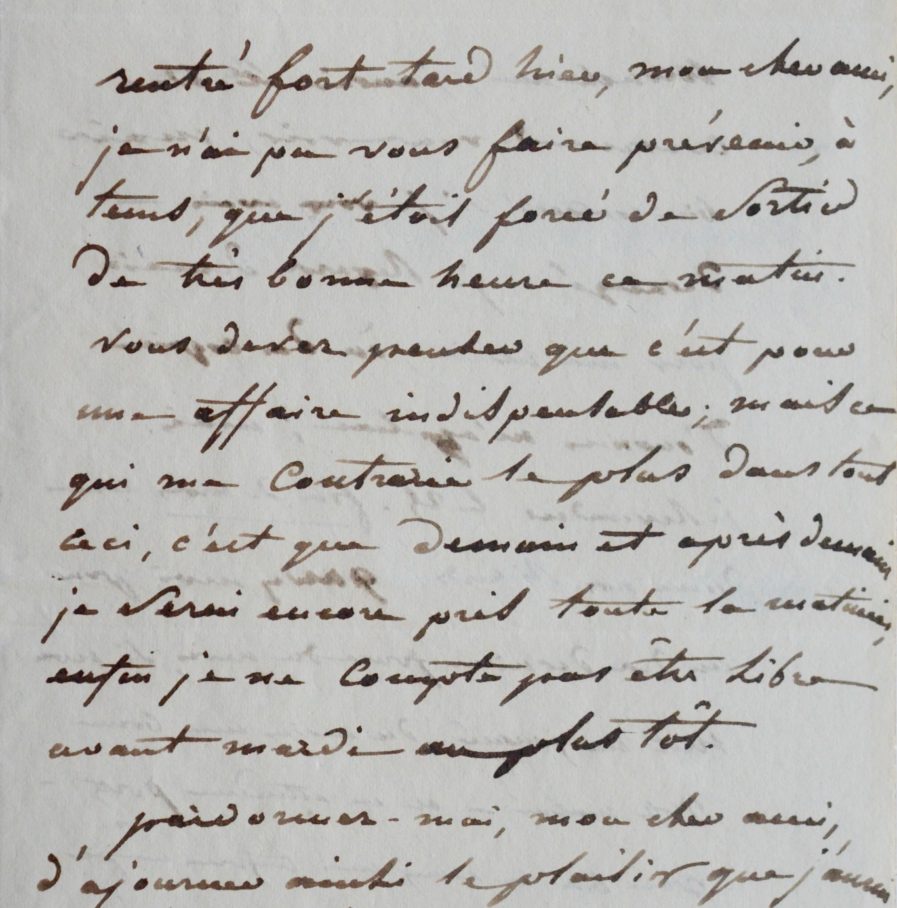 rentré fort tard hier, mon cher ami,
je n'ai pu vous faire prévenir, à
tems, que j'étois forcé de sortir
de très bonne heure ce matin.
vous devez penser que c'est pour
une affaire indispensable; mais ce
qui me contrarie le plus dans tout
ceci, c'est que demain et après demain
je serai encore pris toute la matinée,
enfin je ne compte pas être libre
avant mardi au plus tôt.
pardonnez-moi, mon cher ami,
d'ajourner ainsi le plaisir que j'aurai